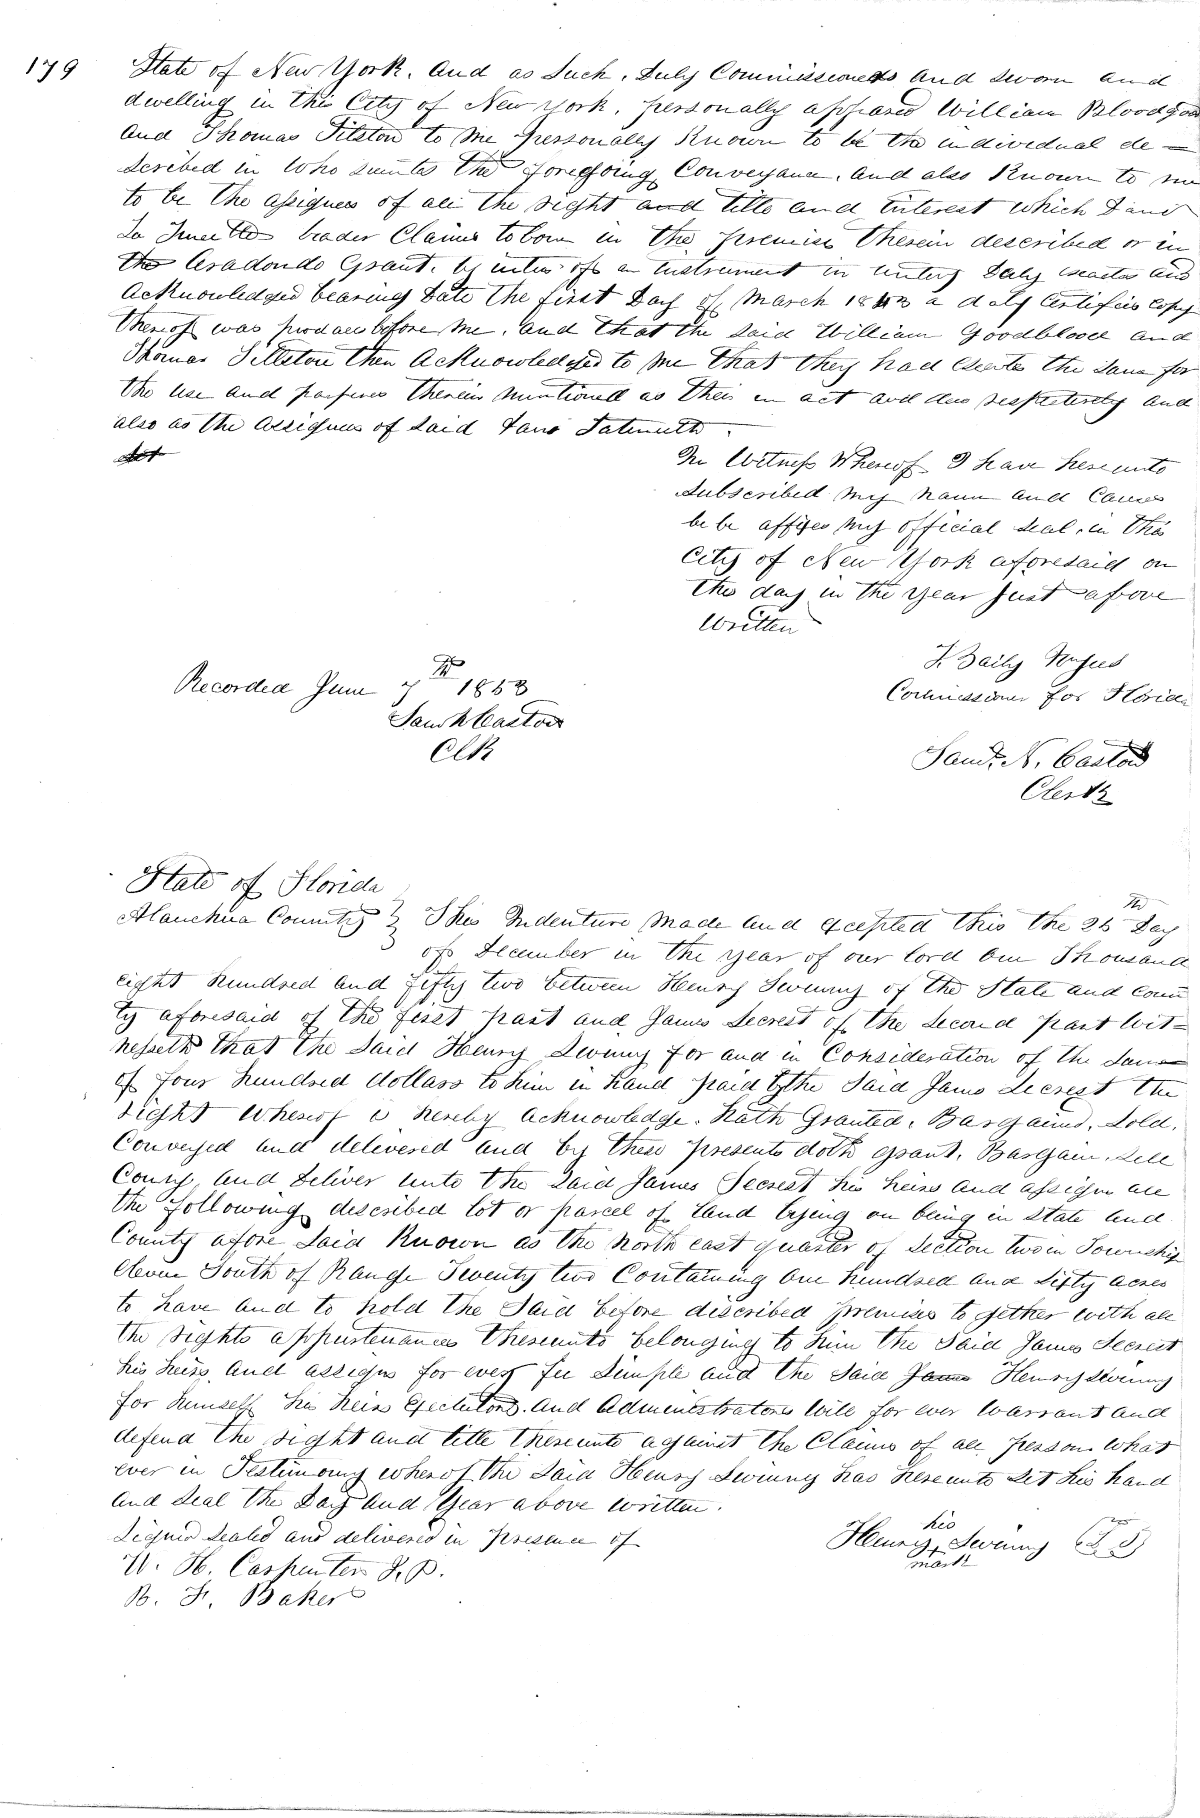 179
State of New York. And as Such, Duly Commissioned and sworn and
dwelling in this City of New York, personally appeared William Bloodgood
And Thomas Tilston to me personally Known to be the individual de=
scribed in Who the foregoing Conveyance, and also Known to me
to be the assignees of all the right and title and interest which
Claims to in the premises therein described or in
the Aradondo Grant. by of an instrument in
Acknowledged bearing Date the first Day of March 1843 a duly Certified Copy
thereof was produced before me, and that the said William Goodblood and
Thomas Tillston then Acknowledged to me that they had the same for
the use and purposes therein mentioned as their act and respectively and
also as the Assignees of Said
In Witness Whereof I have hereunto
Subscribed my name and Caused
be be affixed my official seal, in this
City of New York aforesaid on
the day in the year Just above
Written
J. Baily
Commissioner for Florida
Recorded June 7th 1853
Clk
Saml. N. Caston
Clerk
State of Florida
Alauchua County } This Indenture Made and excepted this the 26th Day
of December in the year of our lord one Thousand
eight hundred and fifty two between Henry Swinny of the State and Coun
ty aforesaid of the first part and James Secrest of the Second part Wit=
nesseth that the Said Henry Swinny for and in Consideration of the Sum
of four hundred dollars to him in hand paid by the Said James Secrest the
right whereof is hereby acknowledge. hath Granted, Bargained, Sold,
Conveyed and delivered and by these presents doth grant, Bargain, Sell
Convy, and Deliver unto the Said James Secrest his heirs and assigns all
the following described lot or parcel of land lying on being in State and
County afore Said Known as the North east quarter of Section two in Township
eleven South of Range Twenty two Containing one hundred and Sixty acres
to have and to hold the Said before discribed premises to gether with all
the rights appurtenances thereunto belonging to him the Said James Secrest
his heirs, And assigns for ever fee Simple and the Said James Henry Swinny
for himself his heirs Executors. And Administrators Will for ever Warrant and
defend the right and title thereunto against the Claims of all persons what
ever in Testimony whereof the Said Henry Swinny has hereunto Set his hand
and Seal the Day and Year above written.
Signed Sealed and delivered in presence of
his
Henry x Swinny (L.S.)
mark
W. H. Carpenter J.P.
B. F. Baker